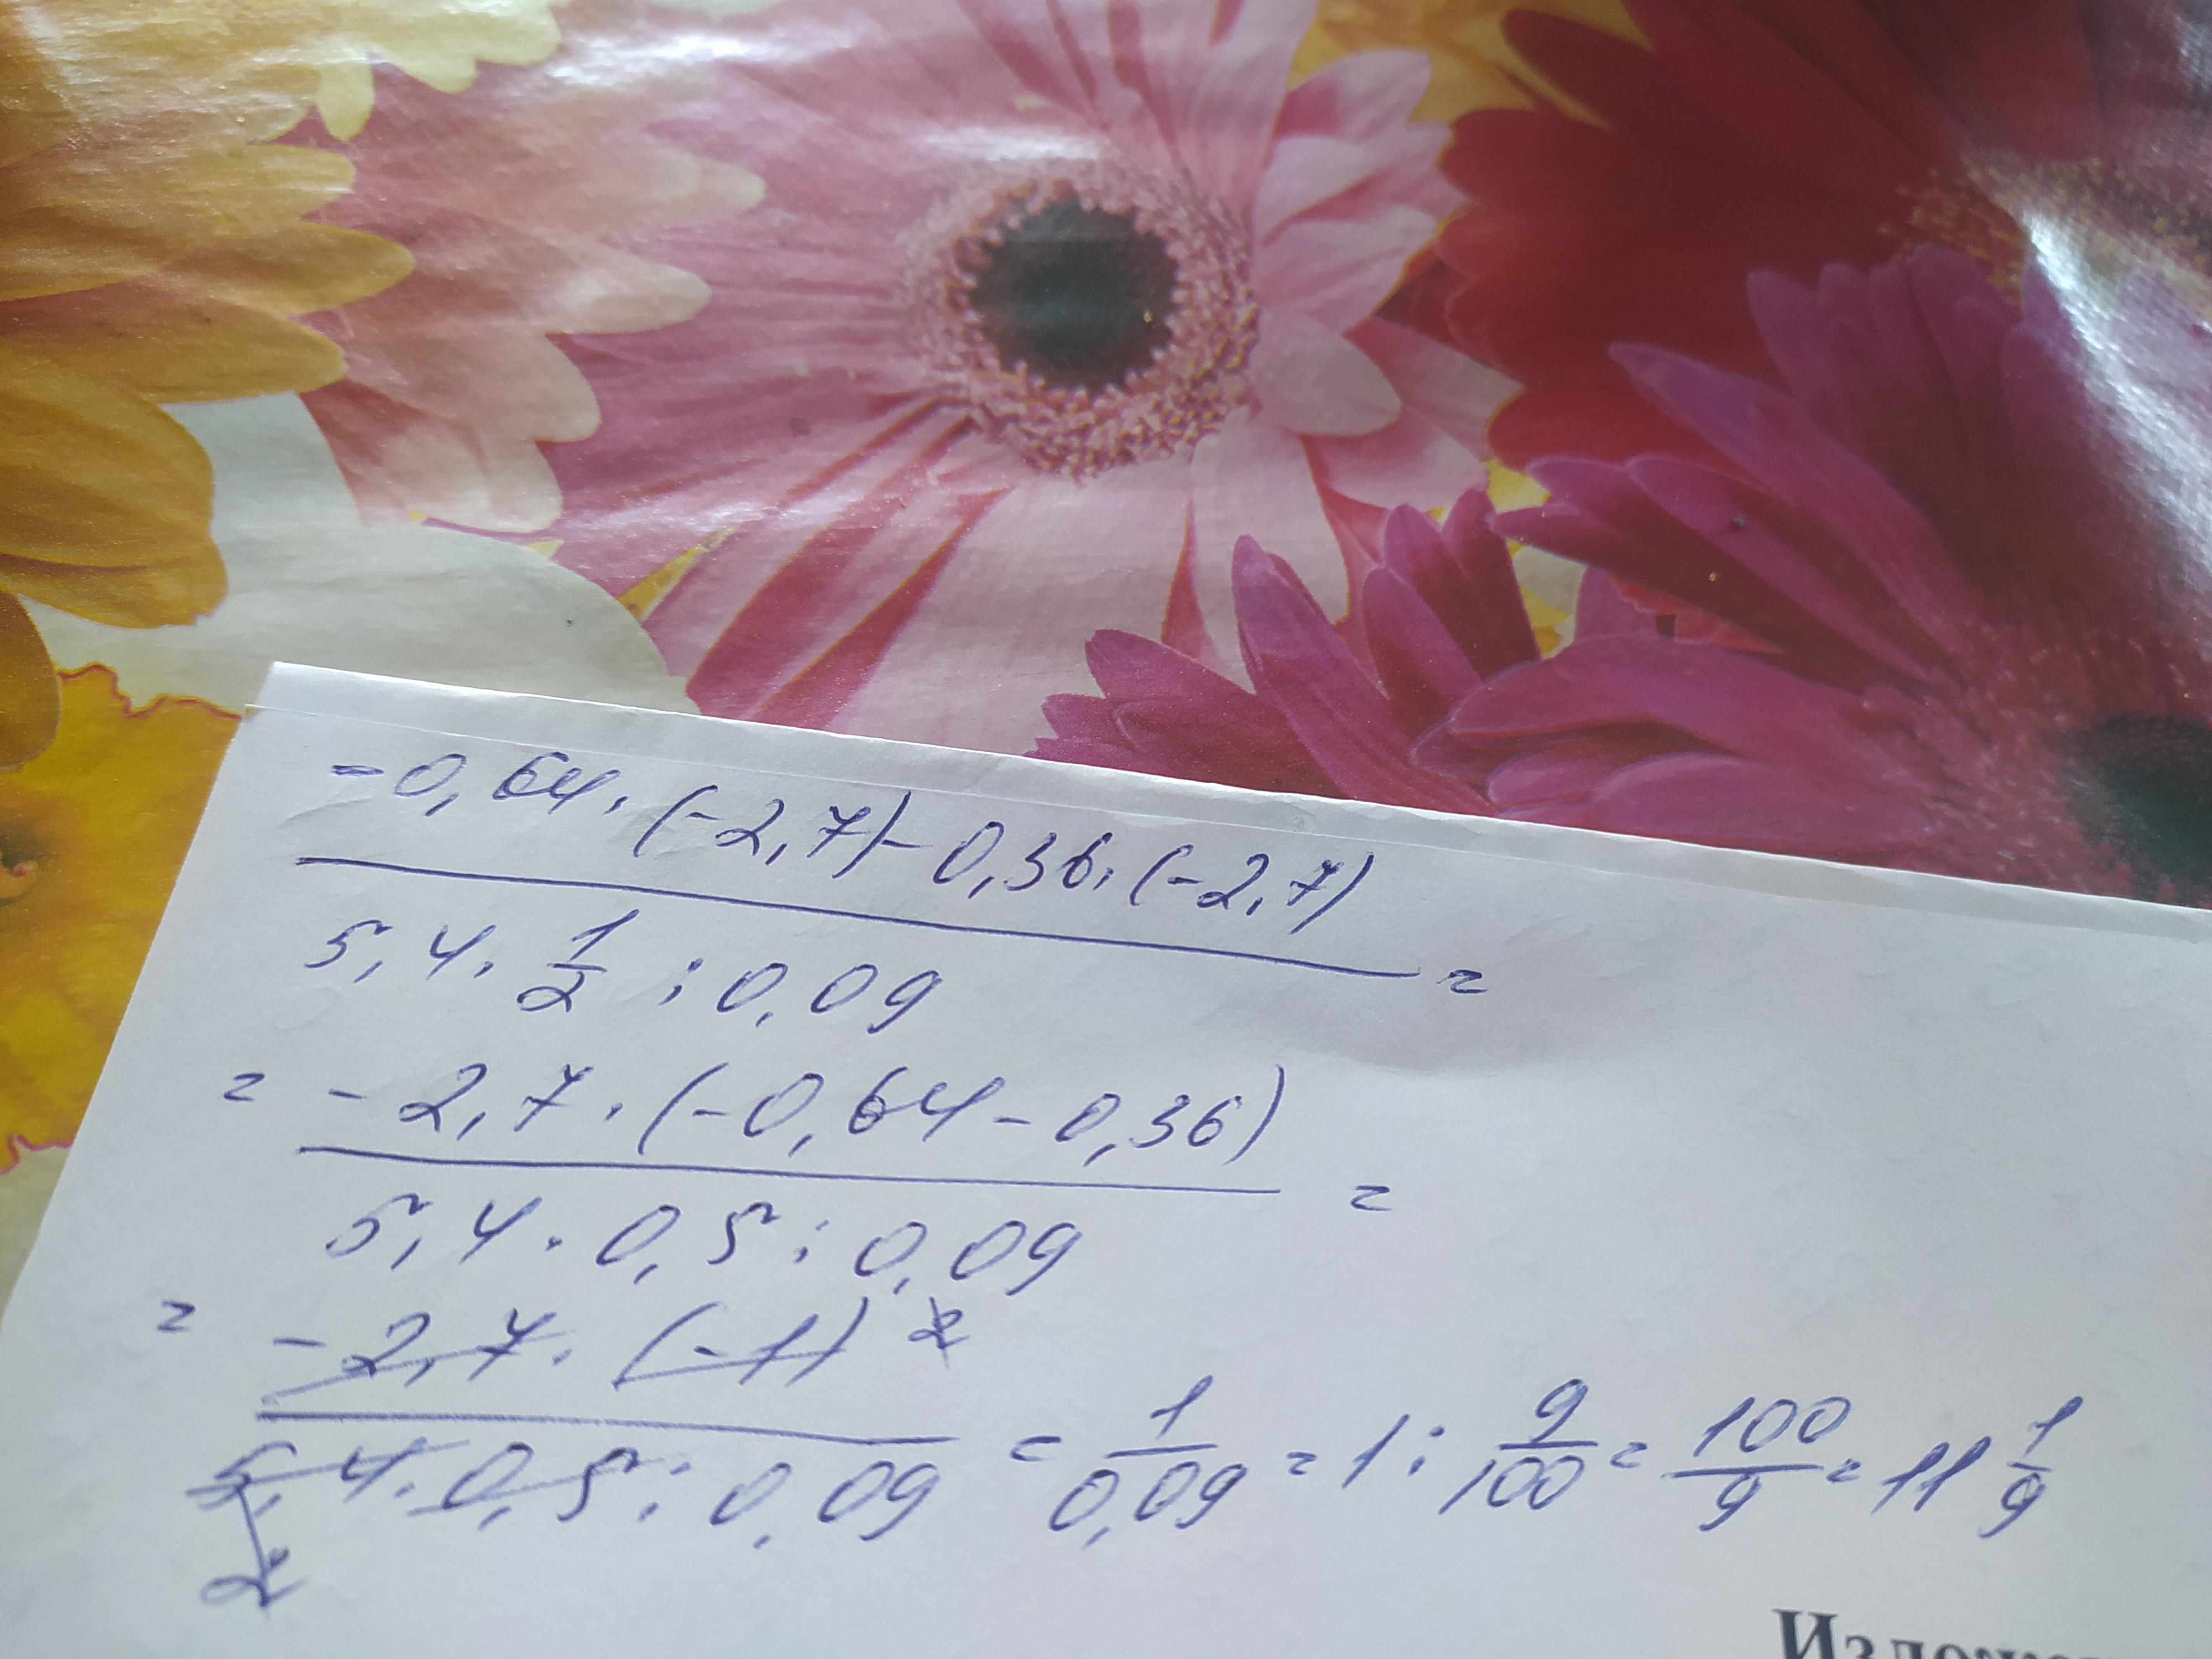 -0,64·(-2,7)-0,36·(-2,7)
5,4·1/2:0,09 =
= -2,7·(-0,64-0,36)
5,4·0,5:0,09 =
= -2,7·(-1) 2
5,4·0,5:0,09 = 1/0,09 = 1:9/100 = 100/9 = 11 1/9
2